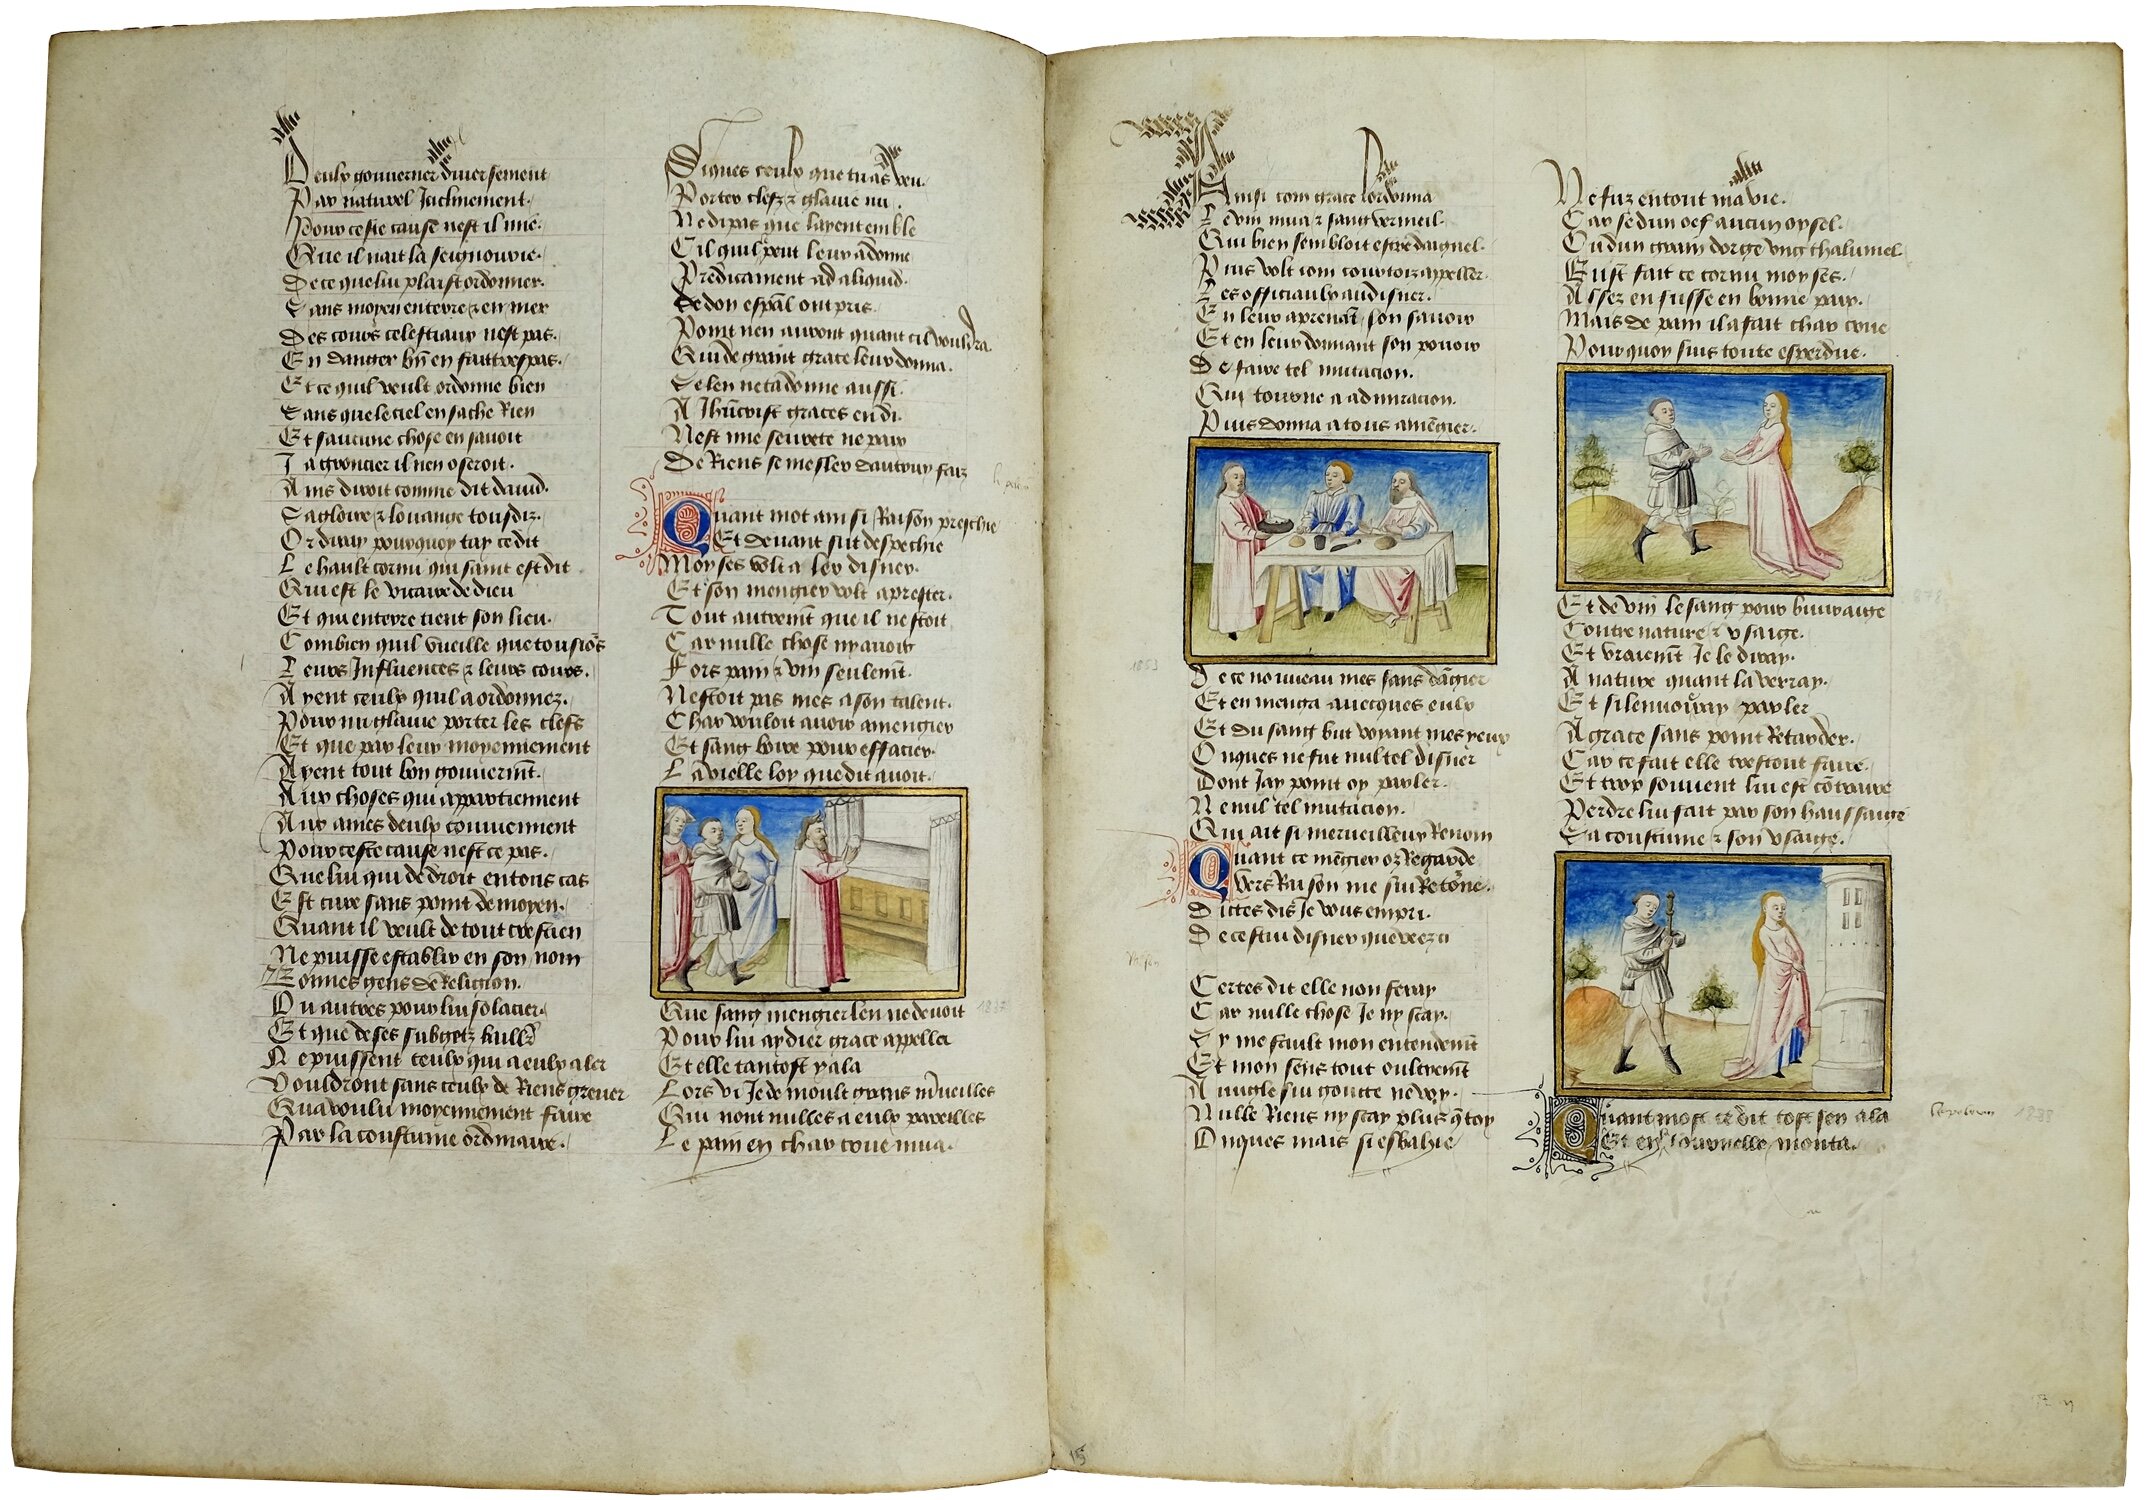 Deulx gouverner diversement
Par naturel Inclinement
Pour ceste cause nest il mie
Que il nait la seignourie
De ce que lui plaist ordonner
Sans moyen en terre & en mer
Des cours celestiaux nest pas
En danger bn̄ en fait trespas
Et ce quil veult ordonne bien
Sans que le ciel en sache Rien
Et saucune chose en savoit
Ia groucier il nen oseroit
Ains diroit comme dit david
Sa gloire & louange tousdiz
Or diray pourquoy tay ce dit
Le hault cornu qui saint est dit
Qui est le vicaire de dieu
Et qui en terre tient son lieu
Combien quil vueille que tousiors
Leurs Influences & leurs cours
Ayent ceulx quil a ordonnez
Pour nu glaive porter les clefs
Et que par leur moyennement
Ayent tout bon gouvermt
Aux choses qui appartiennent
Aux ames deulx conviennent
Pour ceste cause nest ce pas
Que lui qui de droit en tous cas
Est cure sans point de moyen
Quant il veult de tout cressien
Ne puisse establir en son nom
Bonnes gens de Religion
Ou autres pour lui solacier
Et que de ses subgetz
Ne puissent ceulx qui a eulx aler
Vouldront sans ceulx de Riens grever
Qua voulu moyennement faire
Par la coustume ordinaire
Siques ceulx que tu as veu
Porter clefz & glaive nu
Ne di pas que layent emble
Cil qui peut leur a donne
Predicament ad aliquid
De don espāl ont pris
Point nen auront quant cil vouldra
Qui de grant grace leur donna
Se len ne ta donne aussi
A Ihūcrist graces en di
Nest mie seurete ne paix
De Riens se mesler dautruy faiz
Quant mot ainsi Raison preschie
Et devant fut despechie
Moyses volt aler disner
Et son mengier volt aprester
Tout autremt que il nestoit
Car nulle chose ny avoit
Fors pain & vin seulemt
Nestoit pas mes a son talent
Char vouloit avoir a mengier
Et sang boire pour effacier
La vielle loy que dit avoit
Que sang mengier len ne devoit
Pour lui aydier grace appella
Et elle tantost y ala
Lors vi Je de moult grans mveilles
Qui nont nulles a eulx pareilles
Le pain en char crue mua
Ainsi com grace lordonna
Le vin mua & sang vermeil
Qui bien sembloit estre daignel
Puis volt com courtoiz appeller
Les officiaulx au disner
En leur aprenāt son savoir
Et en leur donnant son povoir
De faire tel mutacion
Qui tourne a admiracion
Puis donna a tous a mēgier
De ce nouveau mes sans dāgier
Et en menga avecques eulx
Et du sang but voyant mes yeux
Onques ne fut nul tel disner
Dont Jay point oy parler
Ne nul tel mutacion
Qui ait si merveilleux Renom
Quant ce mēgier oz Regarde
Vers Raison me sui Retorne
Dictes dis Je vous empri
De cestui disner que veez ci
Certes dit elle non feray
Car nulle chose Je ny scay
Cy me fault mon entendemt
Et mon sens tout oultremt
Avugle sui goutte ne voy
Nulle Riens ny scay plus q̄ toy
Onques mais si esbahie
Ne fuz en tout ma vie
Car se dun oef aucun oysel
Ou dun grain dorge ung chalumel
Eust fait ce cornu moyses
Assez en fusse en bonne paix
Mais de pain il a fait char crue
Pourquoy suis toute esperdue
Et de vin le sang pour buvraige
Contre nature & usaige
Et vraiemt Je le diray
A nature quant la verray
Et si lenvoiray parler
A grace sans point Retarder
Car ce fait elle trestout faire
Et trop souvent lui est cōtraire
Perdre lui fait par son haussaige
Sa coustume & son usaige
Quant mot ce dit tost sen ala
Et en sa tournelle monta
15